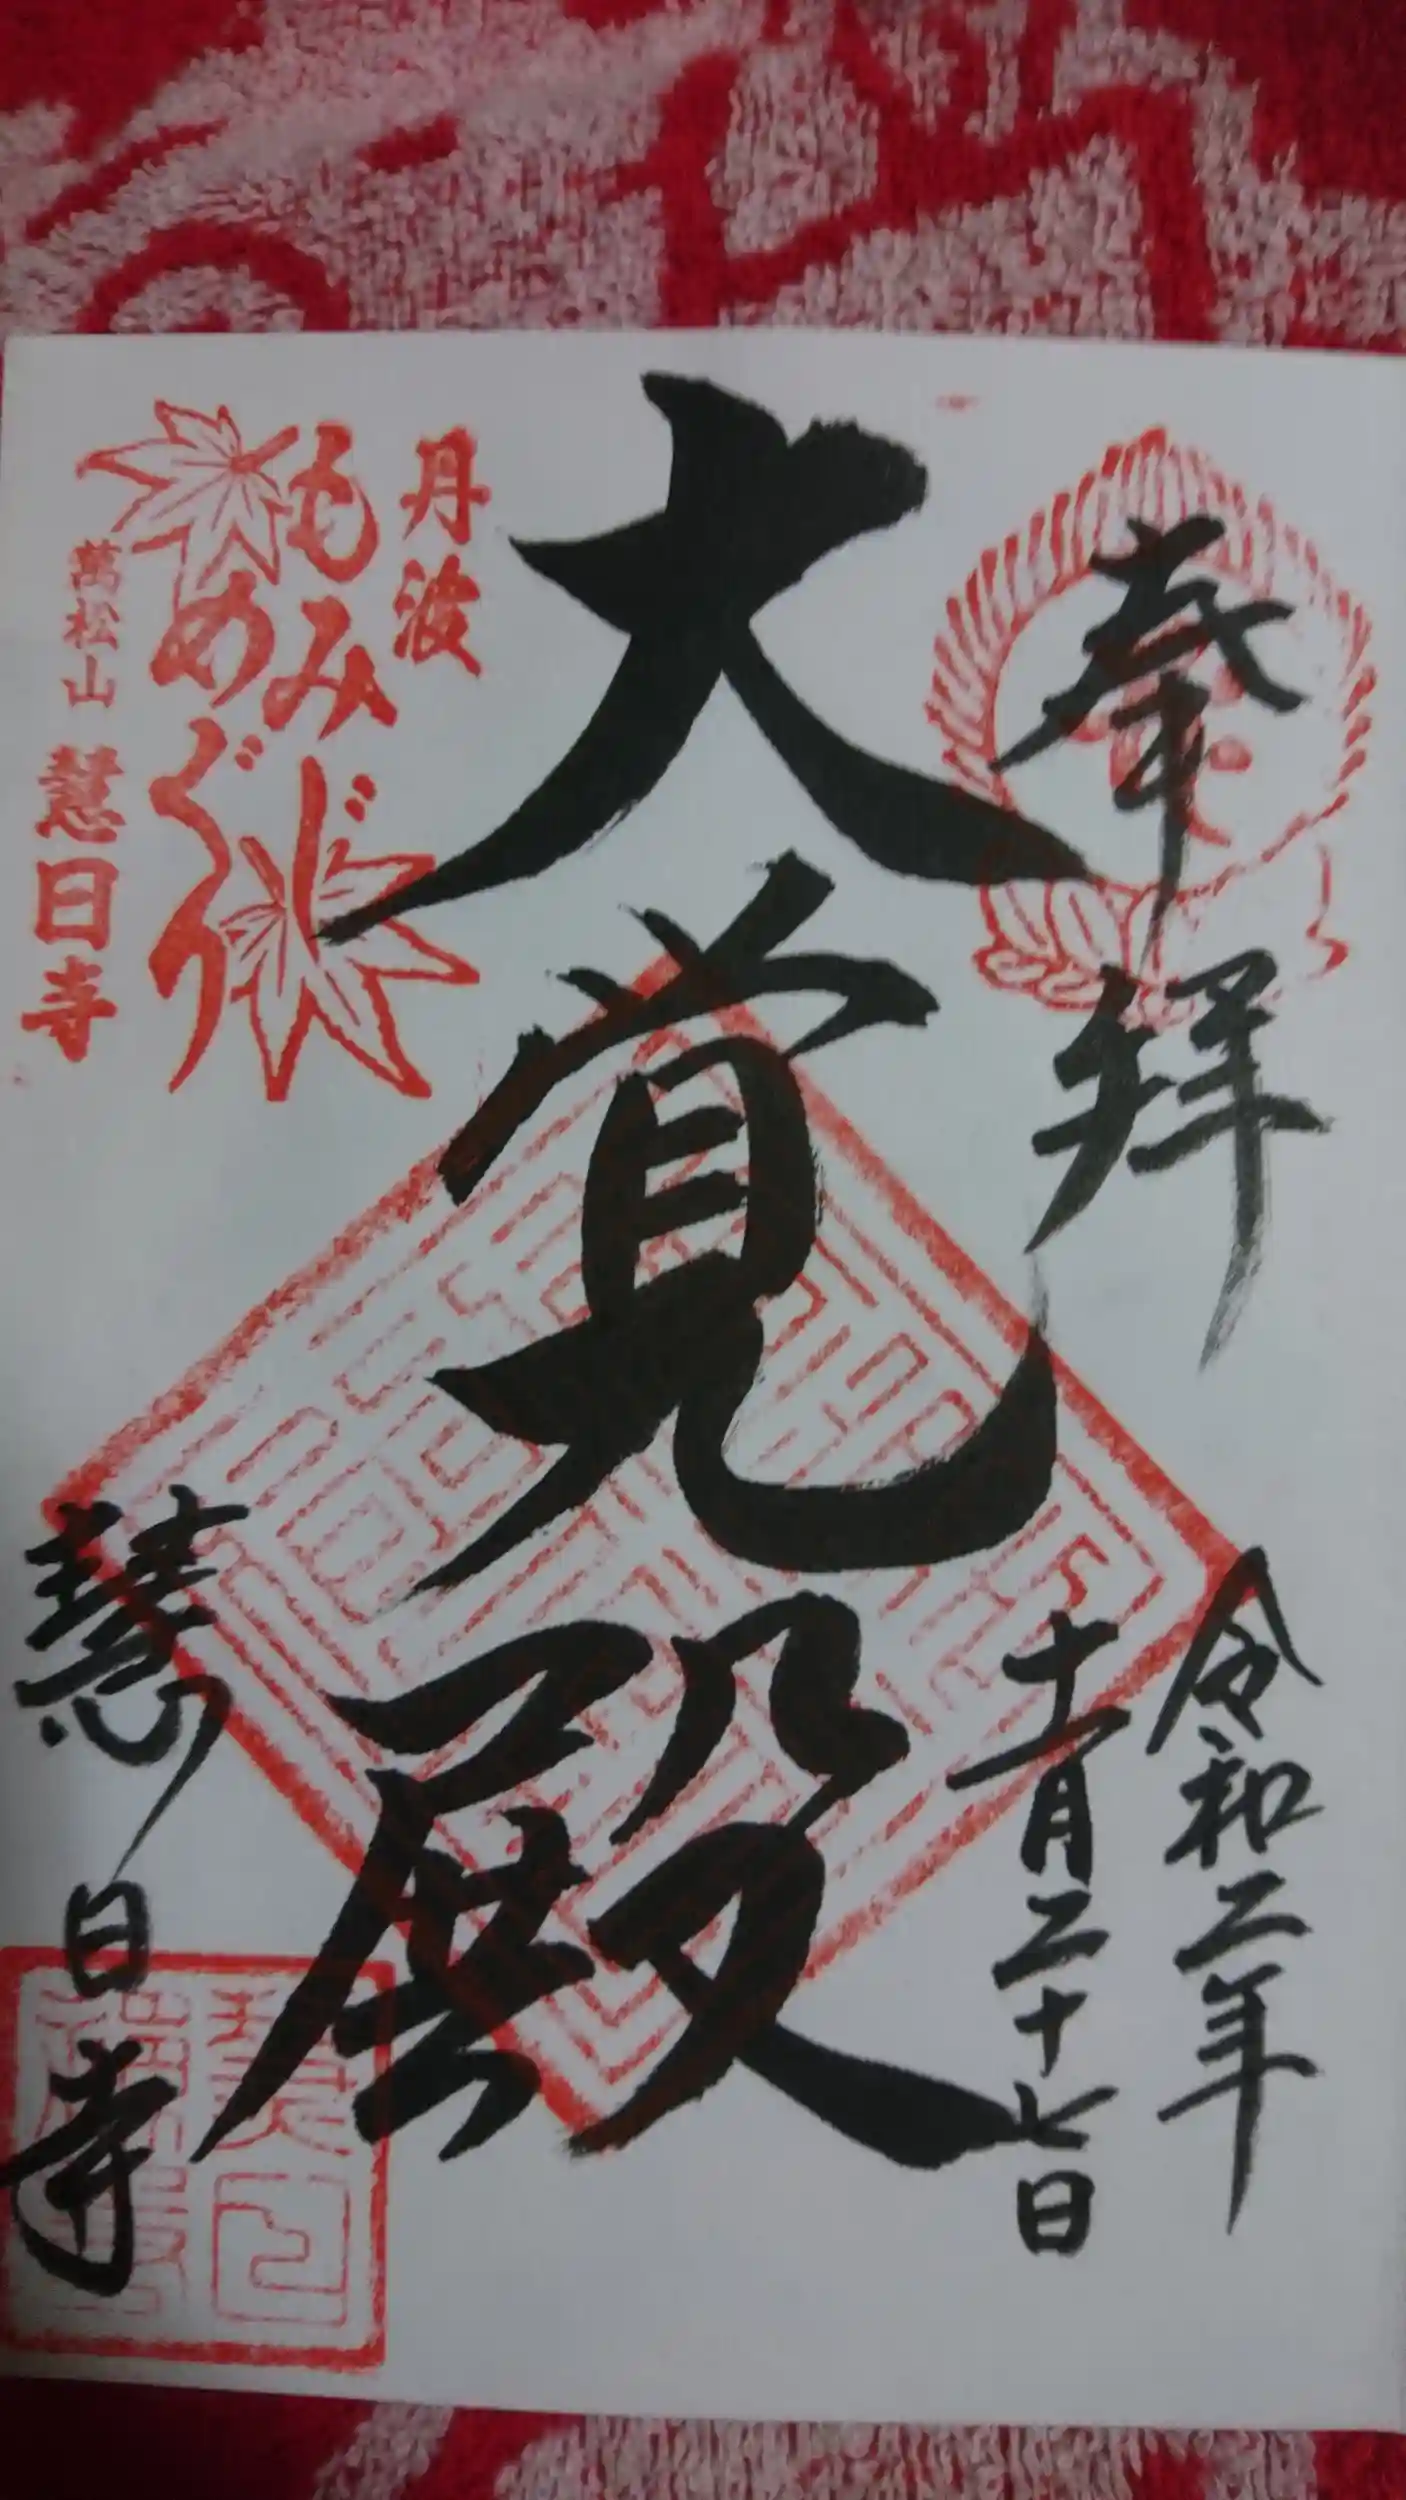 奉拝
令和二年
十一月二十七日
大覚殿
丹波
もみじ
めぐり
萬松山 慧日寺
慧日寺